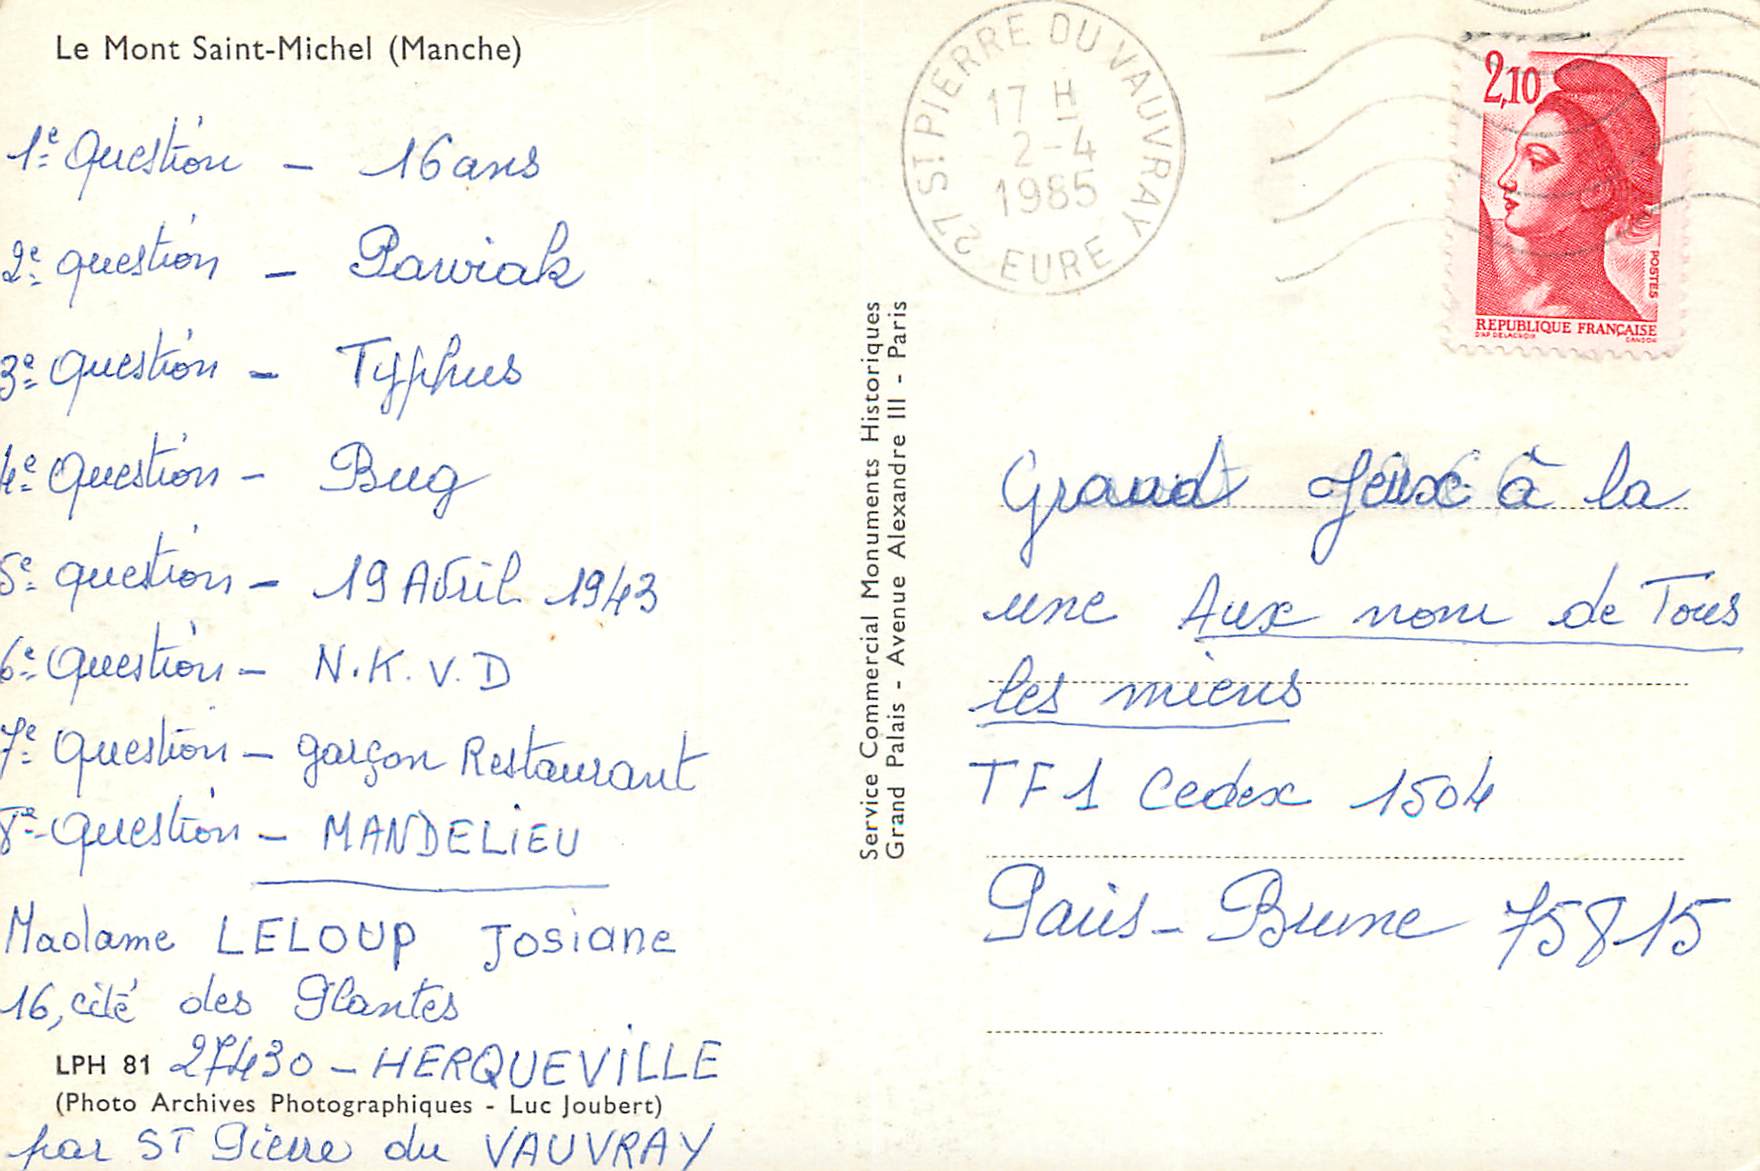 Le Mont Saint-Michel (Manche)
1e Question - 16 ans
2e question - Pawiak
3e Question - Typhus
4e Question - Bug
5e question - 19 Avril 1943
6e Question - N.K.V.D
7e Question - garçon Restaurant
8e Question - MANDELIEU
Madame LELOUP Josiane
16, cité des Plantes
LPH 81 27430 - HERQUEVILLE
(Photo Archives Photographiques - Luc Joubert)
par ST Pierre du VAUVRAY
Service Commercial Monuments Historiques
Grand Palais - Avenue Alexandre III - Paris
27 ST PIERRE DU VAUVRAY
17 H
2-4
1985
EURE
2,10
POSTES
REPUBLIQUE FRANÇAISE
D'AP DELACROIX GANDON
Grand Jeux à la
une Aux nom de Tous
les miens
TF1 Cedex 1504
Paris - Brune 75815